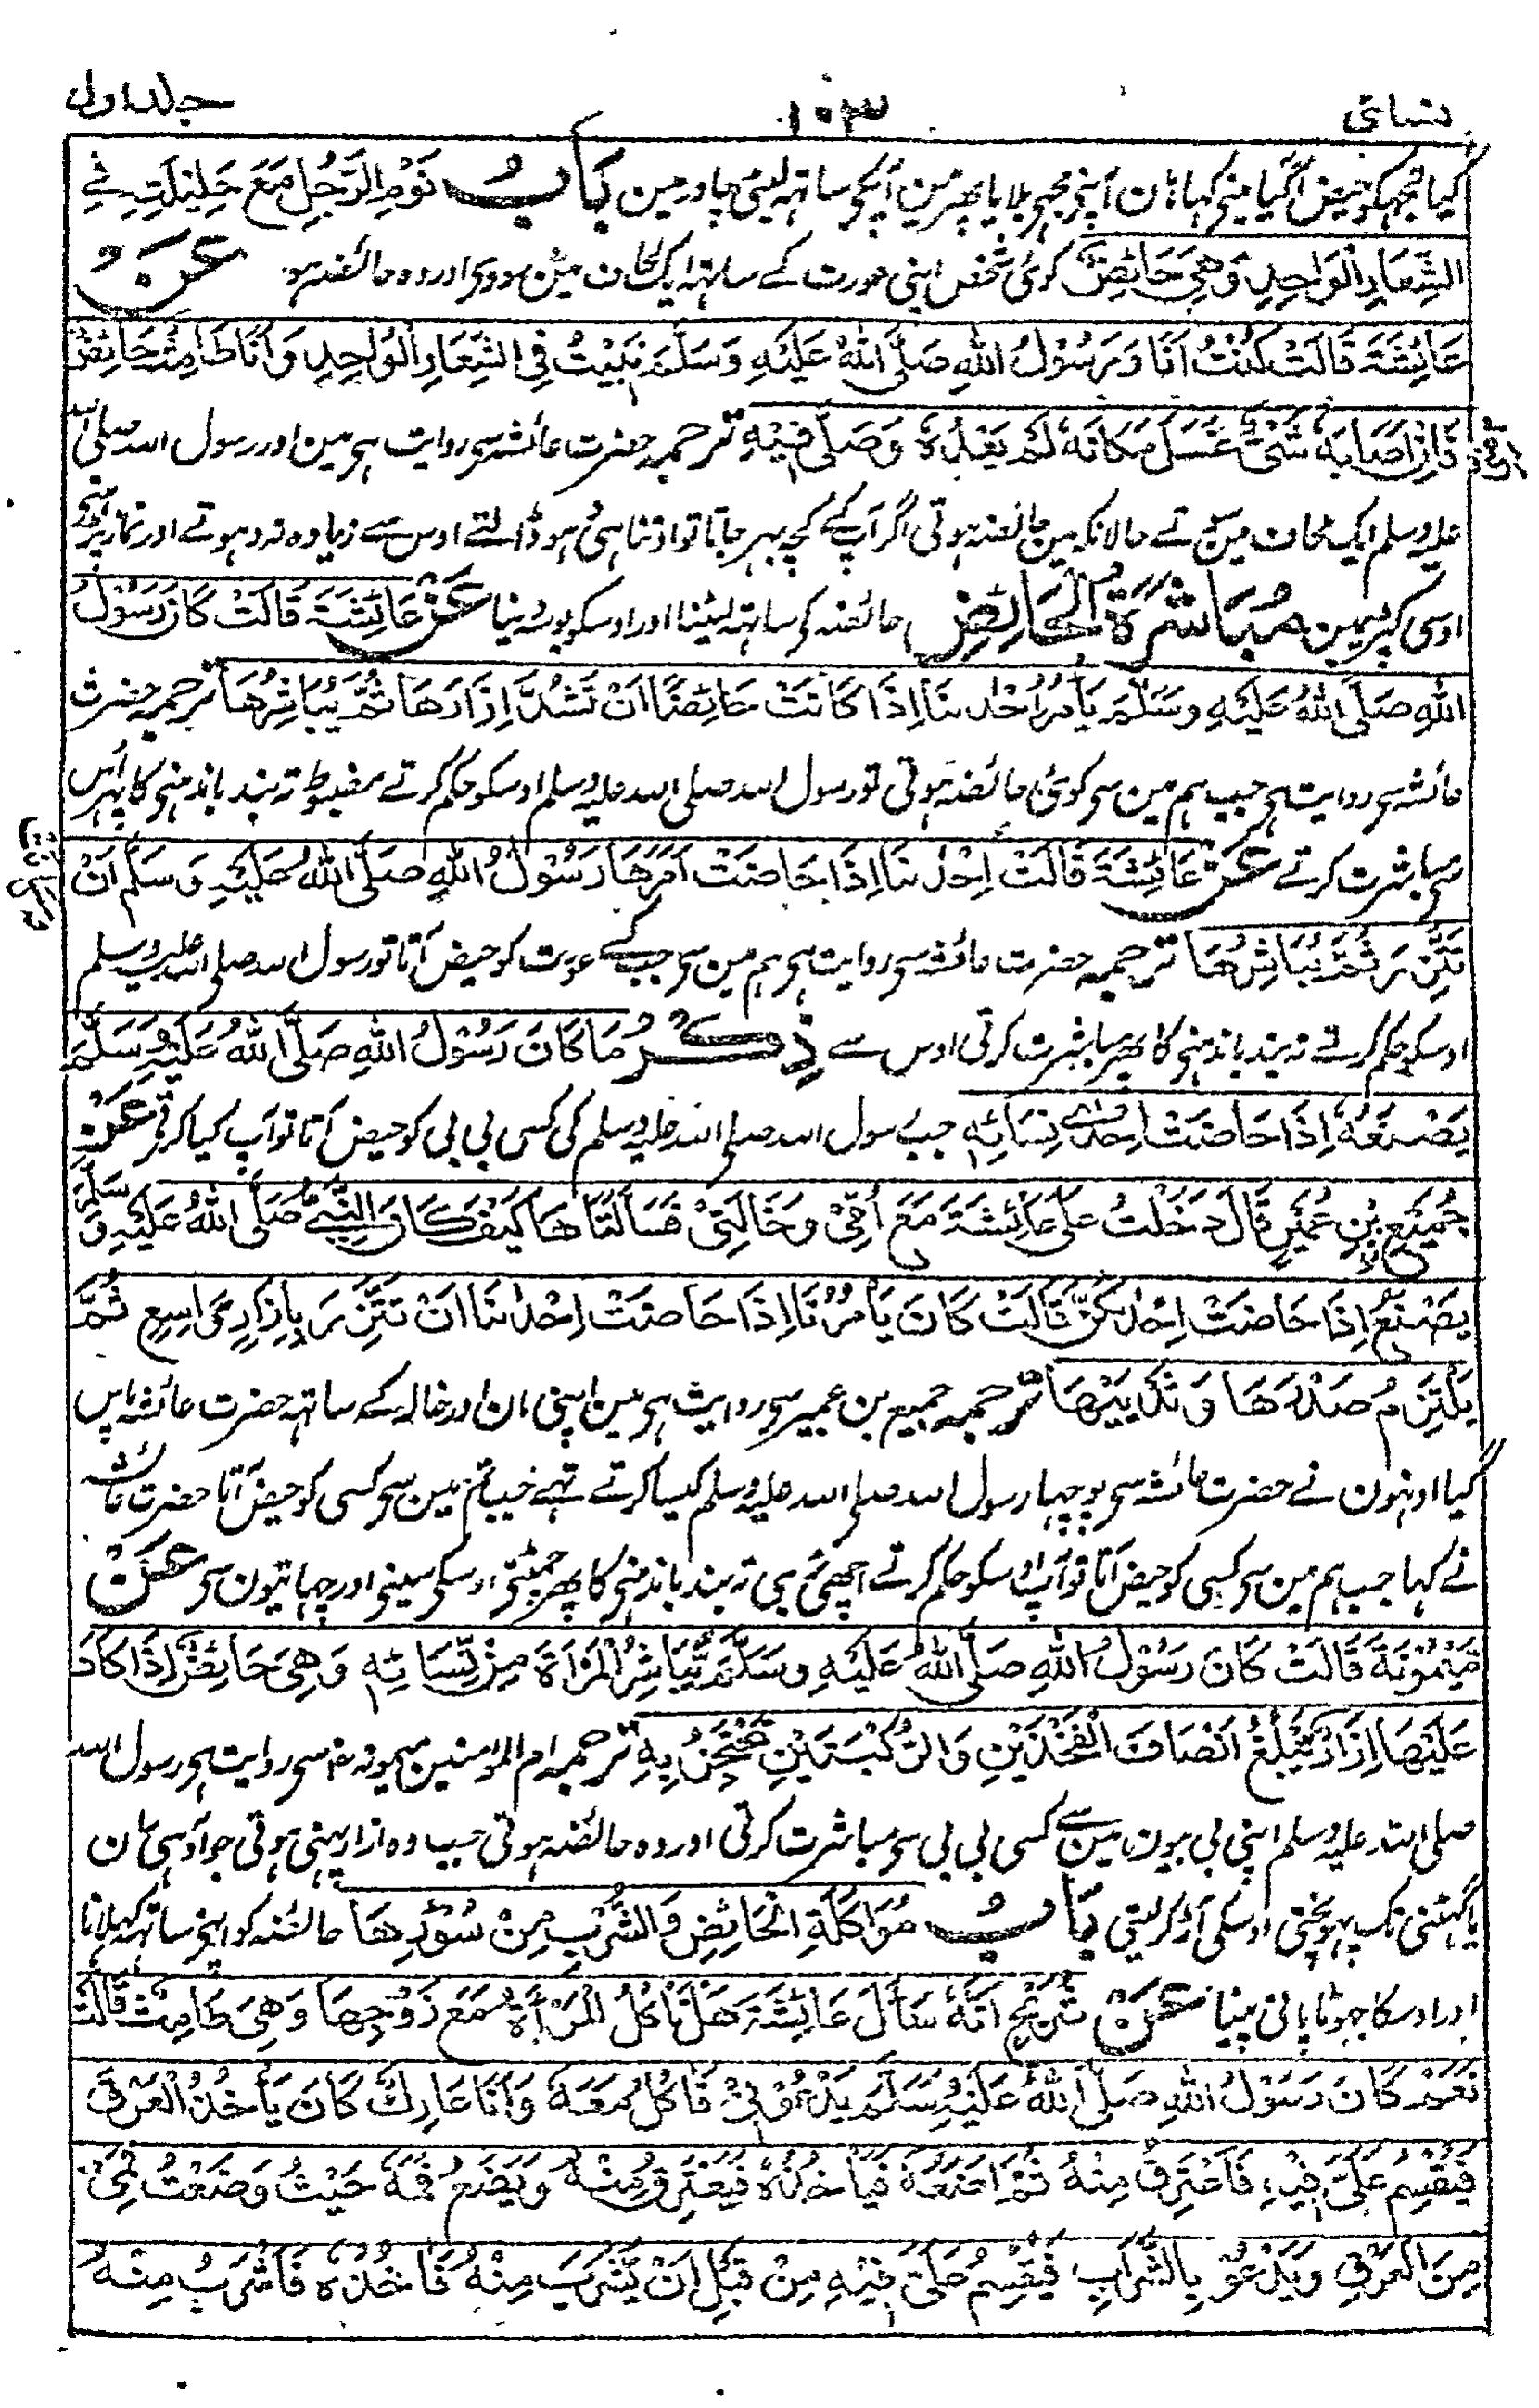 نسائی ۱۰۳ جلد اول
کیا مجہکو حیض آگیا مینے کہا ہان آپنے مجھے بلایا پھر مین آپکے ساتہہ لیٹی چادر مین بَابُ نَوْمِ الرَّجُلِ مَعَ حَلِيْلَتِهِ فِي
الشِّعَارِ الْوَاحِدِ وَهِيَ حَائِضٌ کوئی شخص اپنی عورت کے ساتہہ ایک لحاف مین سووے اور وہ حائضہ ہو عَنْ
عَائِشَةَ قَالَتْ كُنْتُ اَنَا وَرَسُوْلُ اللهِ صَلَّى اللهُ عَلَيْهِ وَسَلَّمَ نَبِيْتُ فِي الشِّعَارِ الْوَاحِدِ وَاَنَا طَامِثٌ حَائِضٌ
فَاِنْ اَصَابَهُ شَيْءٌ غَسَلَ مَكَانَهُ لَمْ يَعْدُهُ وَصَلَّى فِيْهِ ترجمہ حضرت عائشہ سے روایت ہے مین اور رسول اللہ صلی اللہ
علیہ وسلم ایک لحاف مین سوتے حالانکہ مین حائضہ ہوتی اگر آپ کے کچہہ بہر جاتا تو اوتنا ہی دہو ڈالتے اوس سے زیادہ نہ دہوتے اور نماز پڑہتے
اوسی کپڑیمین مُبَاشَرَةُ الْحَائِضِ حائضہ کے ساتہہ لیٹنا اور اوسکو بوسہ لینا عَنْ عَائِشَةَ قَالَتْ كَانَ رَسُوْلُ
اللهِ صَلَّى اللهُ عَلَيْهِ وَسَلَّمَ يَأْمُرُ اِحْدٰىنَا اِذَا كَانَتْ حَائِضًا اَنْ تَشُدَّ اِزَارَهَا ثُمَّ يُبَاشِرُهَا ترجمہ حضرت
عائشہ سے روایت ہے جب ہم مین سے کوئی حائضہ ہوتی تو رسول اللہ صلی اللہ علیہ وسلم اوسکو حکم کرتے مضبوط تہ بند باندہنے کا پھر اس
سے مباشرت کرتے عَنْ عَائِشَةَ قَالَتْ اِحْدٰىنَا اِذَا حَاضَتْ اَمَرَهَا رَسُوْلُ اللهِ صَلَّى اللهُ عَلَيْهِ وَسَلَّمَ اَنْ
تَتَّزِرَ ثُمَّ يُبَاشِرُهَا ترجمہ حضرت عائشہ سے روایت ہے ہم مین سے جب کسی عورت کو حیض آتا تو رسول اللہ صلی اللہ علیہ وسلم
اوسکو حکم کرتے تہ بند باندہنے کا پھر مباشرت کرتی اوس سے ذِكْرُ مَا كَانَ رَسُوْلُ اللهِ صَلَّى اللهُ عَلَيْهِ وَسَلَّمَ
يَصْنَعُهُ اِذَا حَاضَتْ اِحْدٰى نِسَائِهِ جب رسول اللہ صلی اللہ علیہ وسلم کی کسی بی بی کو حیض آتا تو آپ کیا کرتے عَنْ
جُمَيْعِ بْنِ عُمَيْرٍ قَالَ دَخَلْتُ عَلٰى عَائِشَةَ مَعَ اُمِّيْ وَخَالَتِيْ فَسَاَلَتَاهَا كَيْفَ كَانَ النَّبِيُّ صَلَّى اللهُ عَلَيْهِ وَسَلَّمَ
يَصْنَعُ اِذَا حَاضَتْ اِحْدٰىكُنَّ قَالَتْ كَانَ يَأْمُرُنَا اِذَا حَاضَتْ اِحْدٰىنَا اَنْ تَتَّزِرَ بِاِزَارٍ وَاسِعٍ ثُمَّ
يَلْتَزِمُ صَدْرَهَا وَثَدْيَيْهَا ترجمہ جمیع بن عمیر سے روایت ہے مین اپنی مان اور خالہ کے ساتہہ حضرت عائشہ پاس
گیا اونہون نے حضرت عائشہ سے پوچہا رسول اللہ صلی اللہ علیہ وسلم کیسا کرتے تہے جب تم مین سے کسی کو حیض آتا حضرت عائشہ
نے کہا جب ہم مین سے کسی کو حیض آتا تو آپ اوسکو حکم کرتے اچھی بڑی تہ بند باندہنے کا پھر چمٹتے اوسکی سینے اور چہاتیون سے عَنْ
مَيْمُوْنَةَ قَالَتْ كَانَ رَسُوْلُ اللهِ صَلَّى اللهُ عَلَيْهِ وَسَلَّمَ يُبَاشِرُ الْمَرْاَةَ مِنْ نِّسَائِهِ وَهِيَ حَائِضٌ اِذَا كَانَ
عَلَيْهَا اِزَارٌ يَّبْلُغُ اَنْصَافَ الْفَخْذَيْنِ وَالرُّكْبَتَيْنِ تَحْتَجِزُ بِهِ ترجمہ ام المومنین میمونہ سے روایت ہے رسول اللہ
صلی اللہ علیہ وسلم اپنی بی بیون مین سے کسی بی بی سے مباشرت کرتی اور وہ حائضہ ہوتی جب وہ ازار پہنی ہوتی جو آدہی ران
یا گہٹنی تک پہونچتی اوسکی آڑ کر لیتی بَابُ مُوَاكَلَةِ الْحَائِضِ وَالشُّرْبِ مِنْ سُؤْرِهَا حائضہ کو اپنے ساتہہ کہلانا
اور اوسکا جہوٹا پانی پینا عَنْ شُرَيْحٍ اَنَّهُ سَاَلَ عَائِشَةَ هَلْ تَاْكُلُ الْمَرْاَةُ مَعَ زَوْجِهَا وَهِيَ طَامِثٌ قَالَتْ
نَعَمْ كَانَ رَسُوْلُ اللهِ صَلَّى اللهُ عَلَيْهِ وَسَلَّمَ يَدْعُوْنِيْ فَاٰكُلُ مَعَهُ وَاَنَا عَارِكٌ كَانَ يَأْخُذُ الْعَرْقَ
فَيُقْسِمُ عَلَيَّ فِيْهِ فَاَعْتَرِقُ مِنْهُ ثُمَّ اَضَعُهُ فَيَأْخُذُهُ فَيَعْتَرِقُ مِنْهُ وَيَضَعُ فَمَهُ حَيْثُ وَضَعْتُ فَمِيْ
مِنَ الْعَرْقِ وَيَدْعُوْ بِالشَّرَابِ فَيُقْسِمُ عَلَيَّ فِيْهِ مِنْ قَبْلِ اَنْ يَّشْرَبَ مِنْهُ فَاٰخُذُهُ فَاَشْرَبُ مِنْهُ